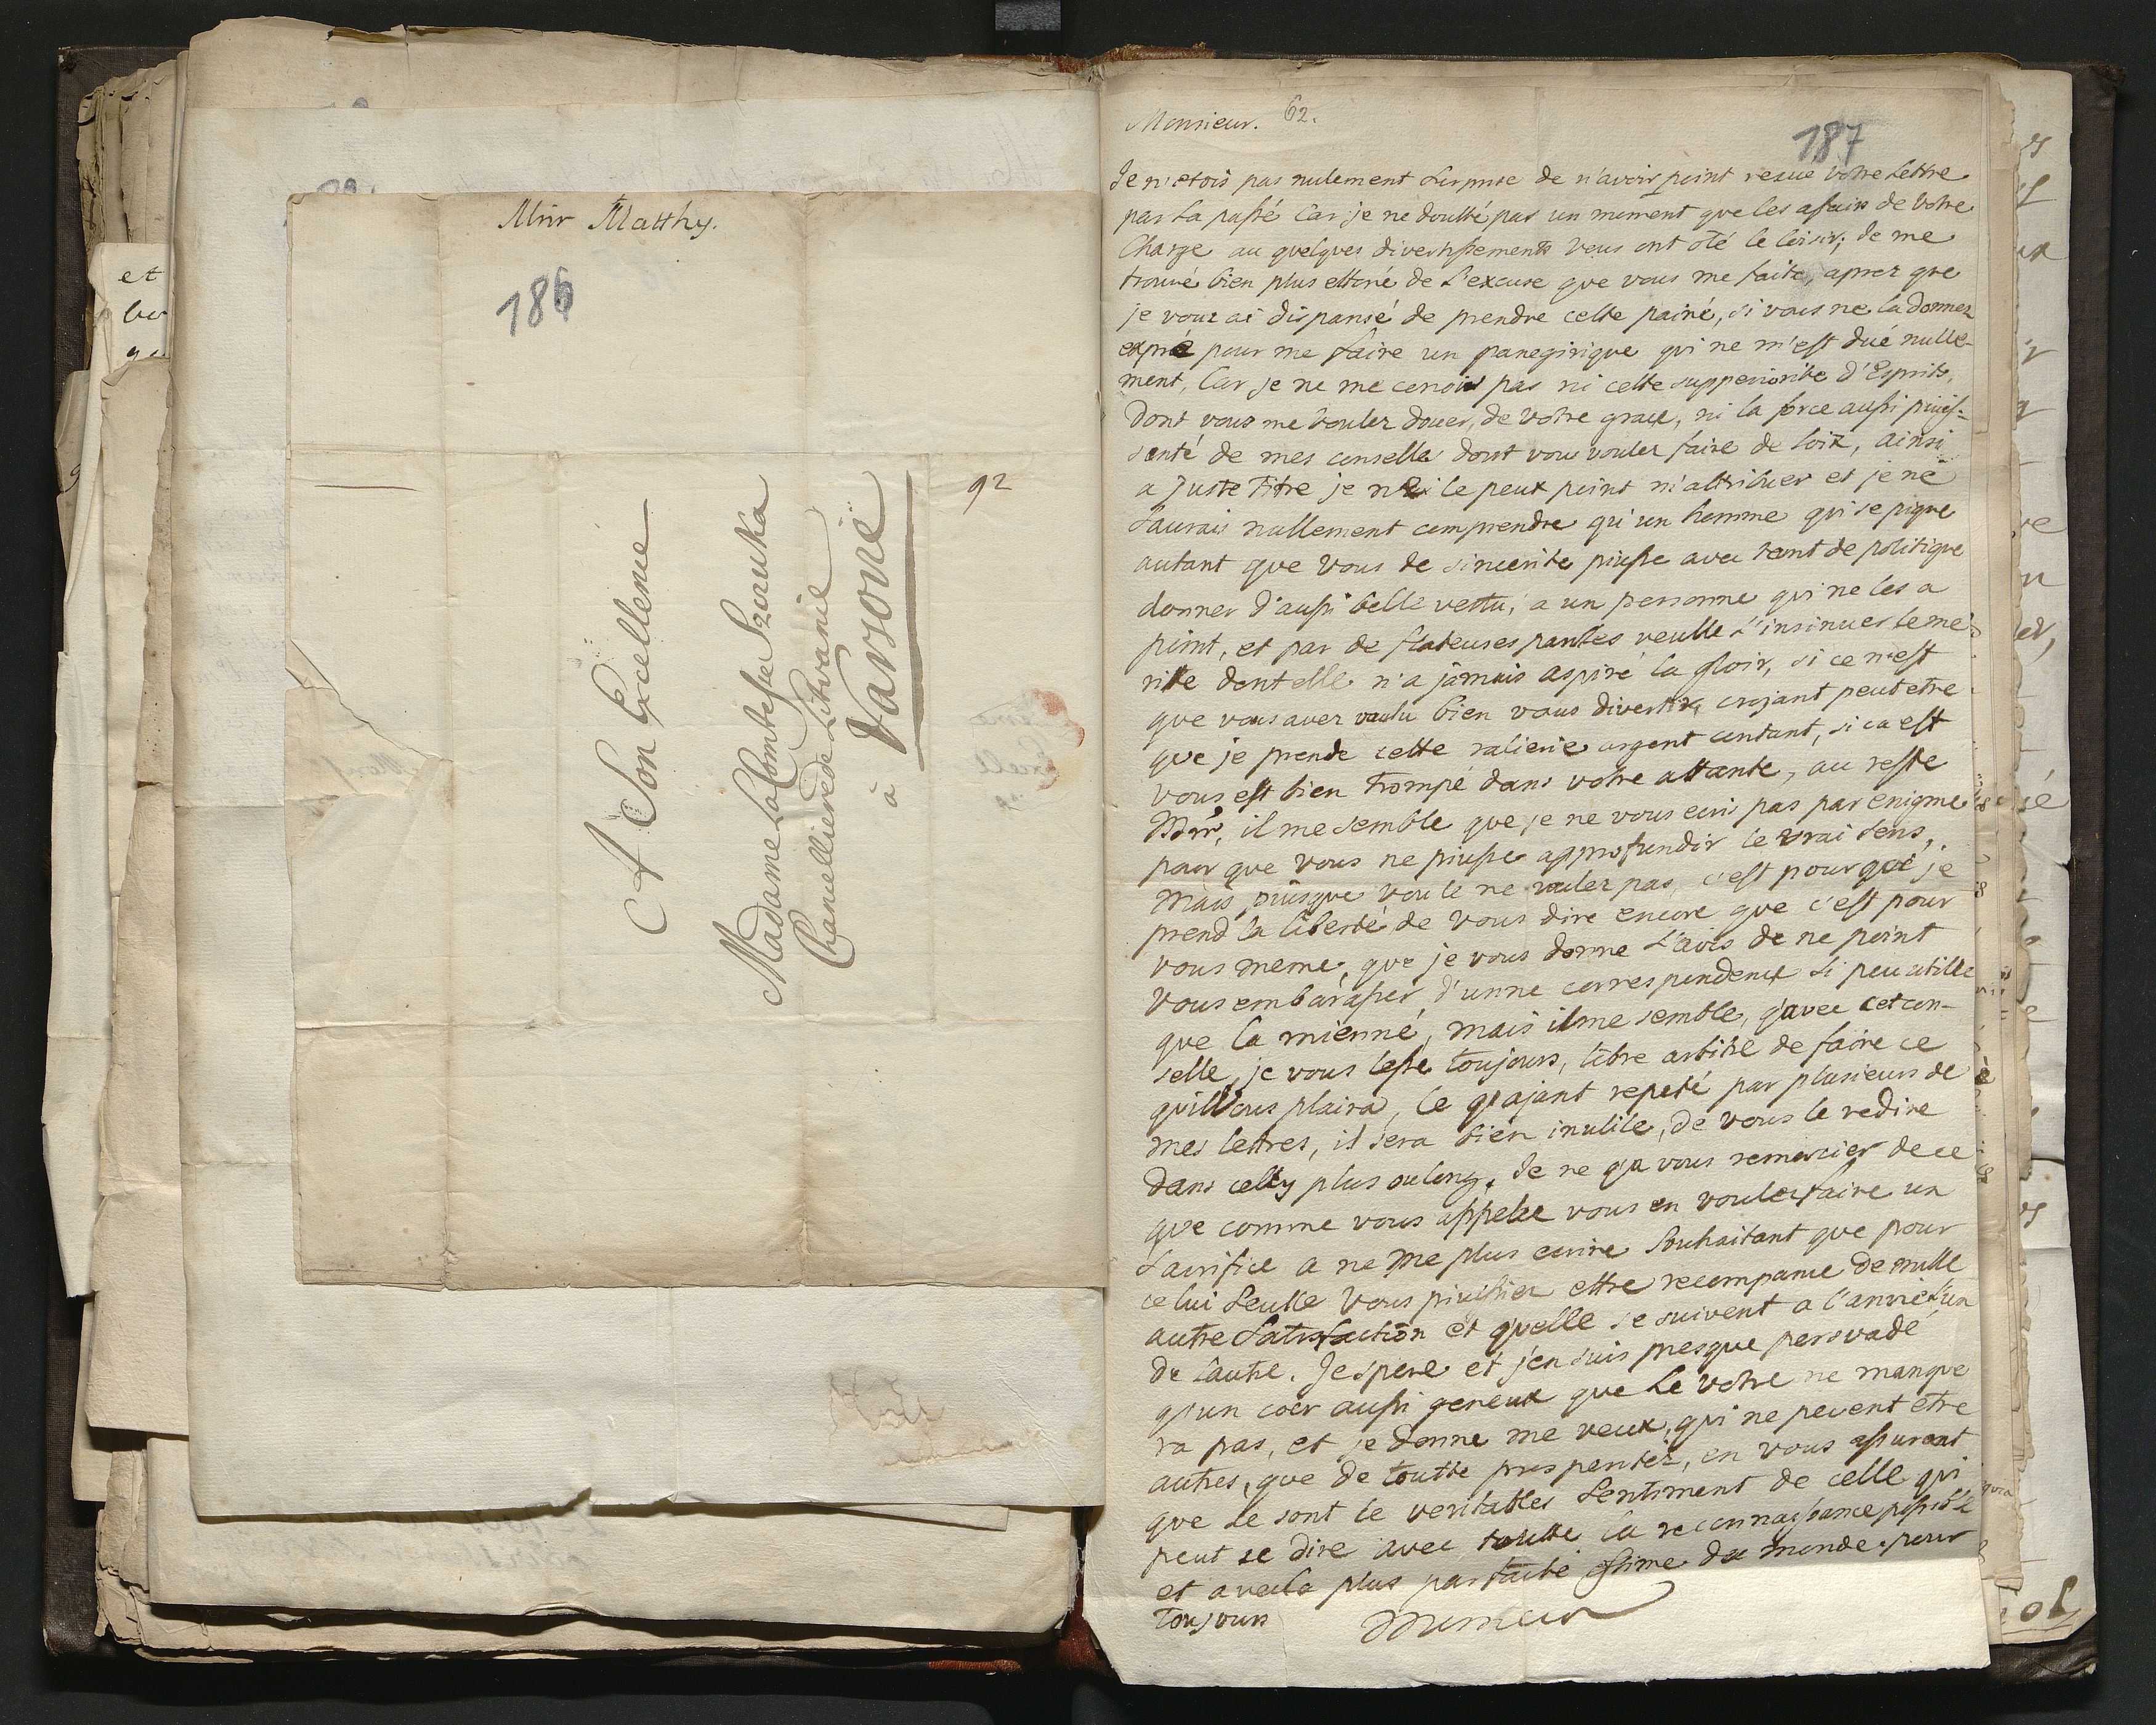 Mnr Matthy.
186
92
A Son Excellence
Madame La Comtesse Szczuka
Chancelliere de Litvanie
à
Varsovie
et
Monsieur. 62.
187
Je n'etois pas nulement surprise de n'avoir point recue votre Lettre
par La passé Car je ne doutté pas un moment que les afairs de Votre
Charge au quelques divertissements vous ont oté le loisir; Je me
trouvé bien plus ettoné de L'excuse que vous me faite, aprez que
je vour ai dispansé de prendre cette painé, si vous ne la donnez
expré pour me faire un panegirique qui ne m'est dué nulle-
ment, Car je ne me conois pas ni cette supperiorite d'Esprits,
Dont vous me voulez douer, de votre grace, ni la force aussi puis-
santé de mes conselles dont vou voulez faire de loix, ainsi
a Juste Titre je ne le peux point m'attribuer et je ne
saurais nullement comprendre qu'un homme qui se pique
autant que Vous de sincerite puisse avec tant de politique
donner d'aussi belle vertu, a un personne qui ne les a
point, et par de flateuses parolles veulle s'insinuer le me-
rite dont elle n'a jamais aspiré la gloir, si ce n'est
que vous avez voulu bien vous divertir, crojant peut etre
que je prende cette ralierie argent contant, si ca est
vous est bien trompé dans votre attante, au reste
Mnr, il me semble que je ne vous ecris pas par enigme
pour que vous ne puisse approfundir le vrai sens,
Mais puisque vou le ne vouler pas, c'est pourquoi je
prend la liberté de vous dire encore que c'est pour
vous meme, que je vous donne L'avis de ne point
Vous embarasser d'unne correspondence si peu utille
que la mienné, mais il me semble, q'avec cet con-
selle, je vous lesse toujours, libre arbitre de faire ce
qu'il Vous plaira, Le q'ajant repeté par plusieurs de
mes lettres, il sera bien inutile, de vous le redire
dans cellÿ plus oulong. Je ne q'a vous remercier de ce
que comme vous appelle vous en voulez faire un
Sacrifice a ne me plus ecrire Souhaitant que pour
celui Seulle Vous puissiez ettre recompance de mille
autre Satisfaction et quelle se suivent a l'anvie L'un
de L'autre. J'espere et j'en suis presque persvadé
q'un coer aussi genereux que Le Votre ne manque
ra pas, et je donne me veux, qui ne peuvent etre
autres, que de toutte prosperitez, en vous assurant
que se sont le veritables Sentiment de celle qui
peut se dire avec toutte la reconnaissance possible
et avec la plus parfaite estime du monde pour
toujours Monsieur